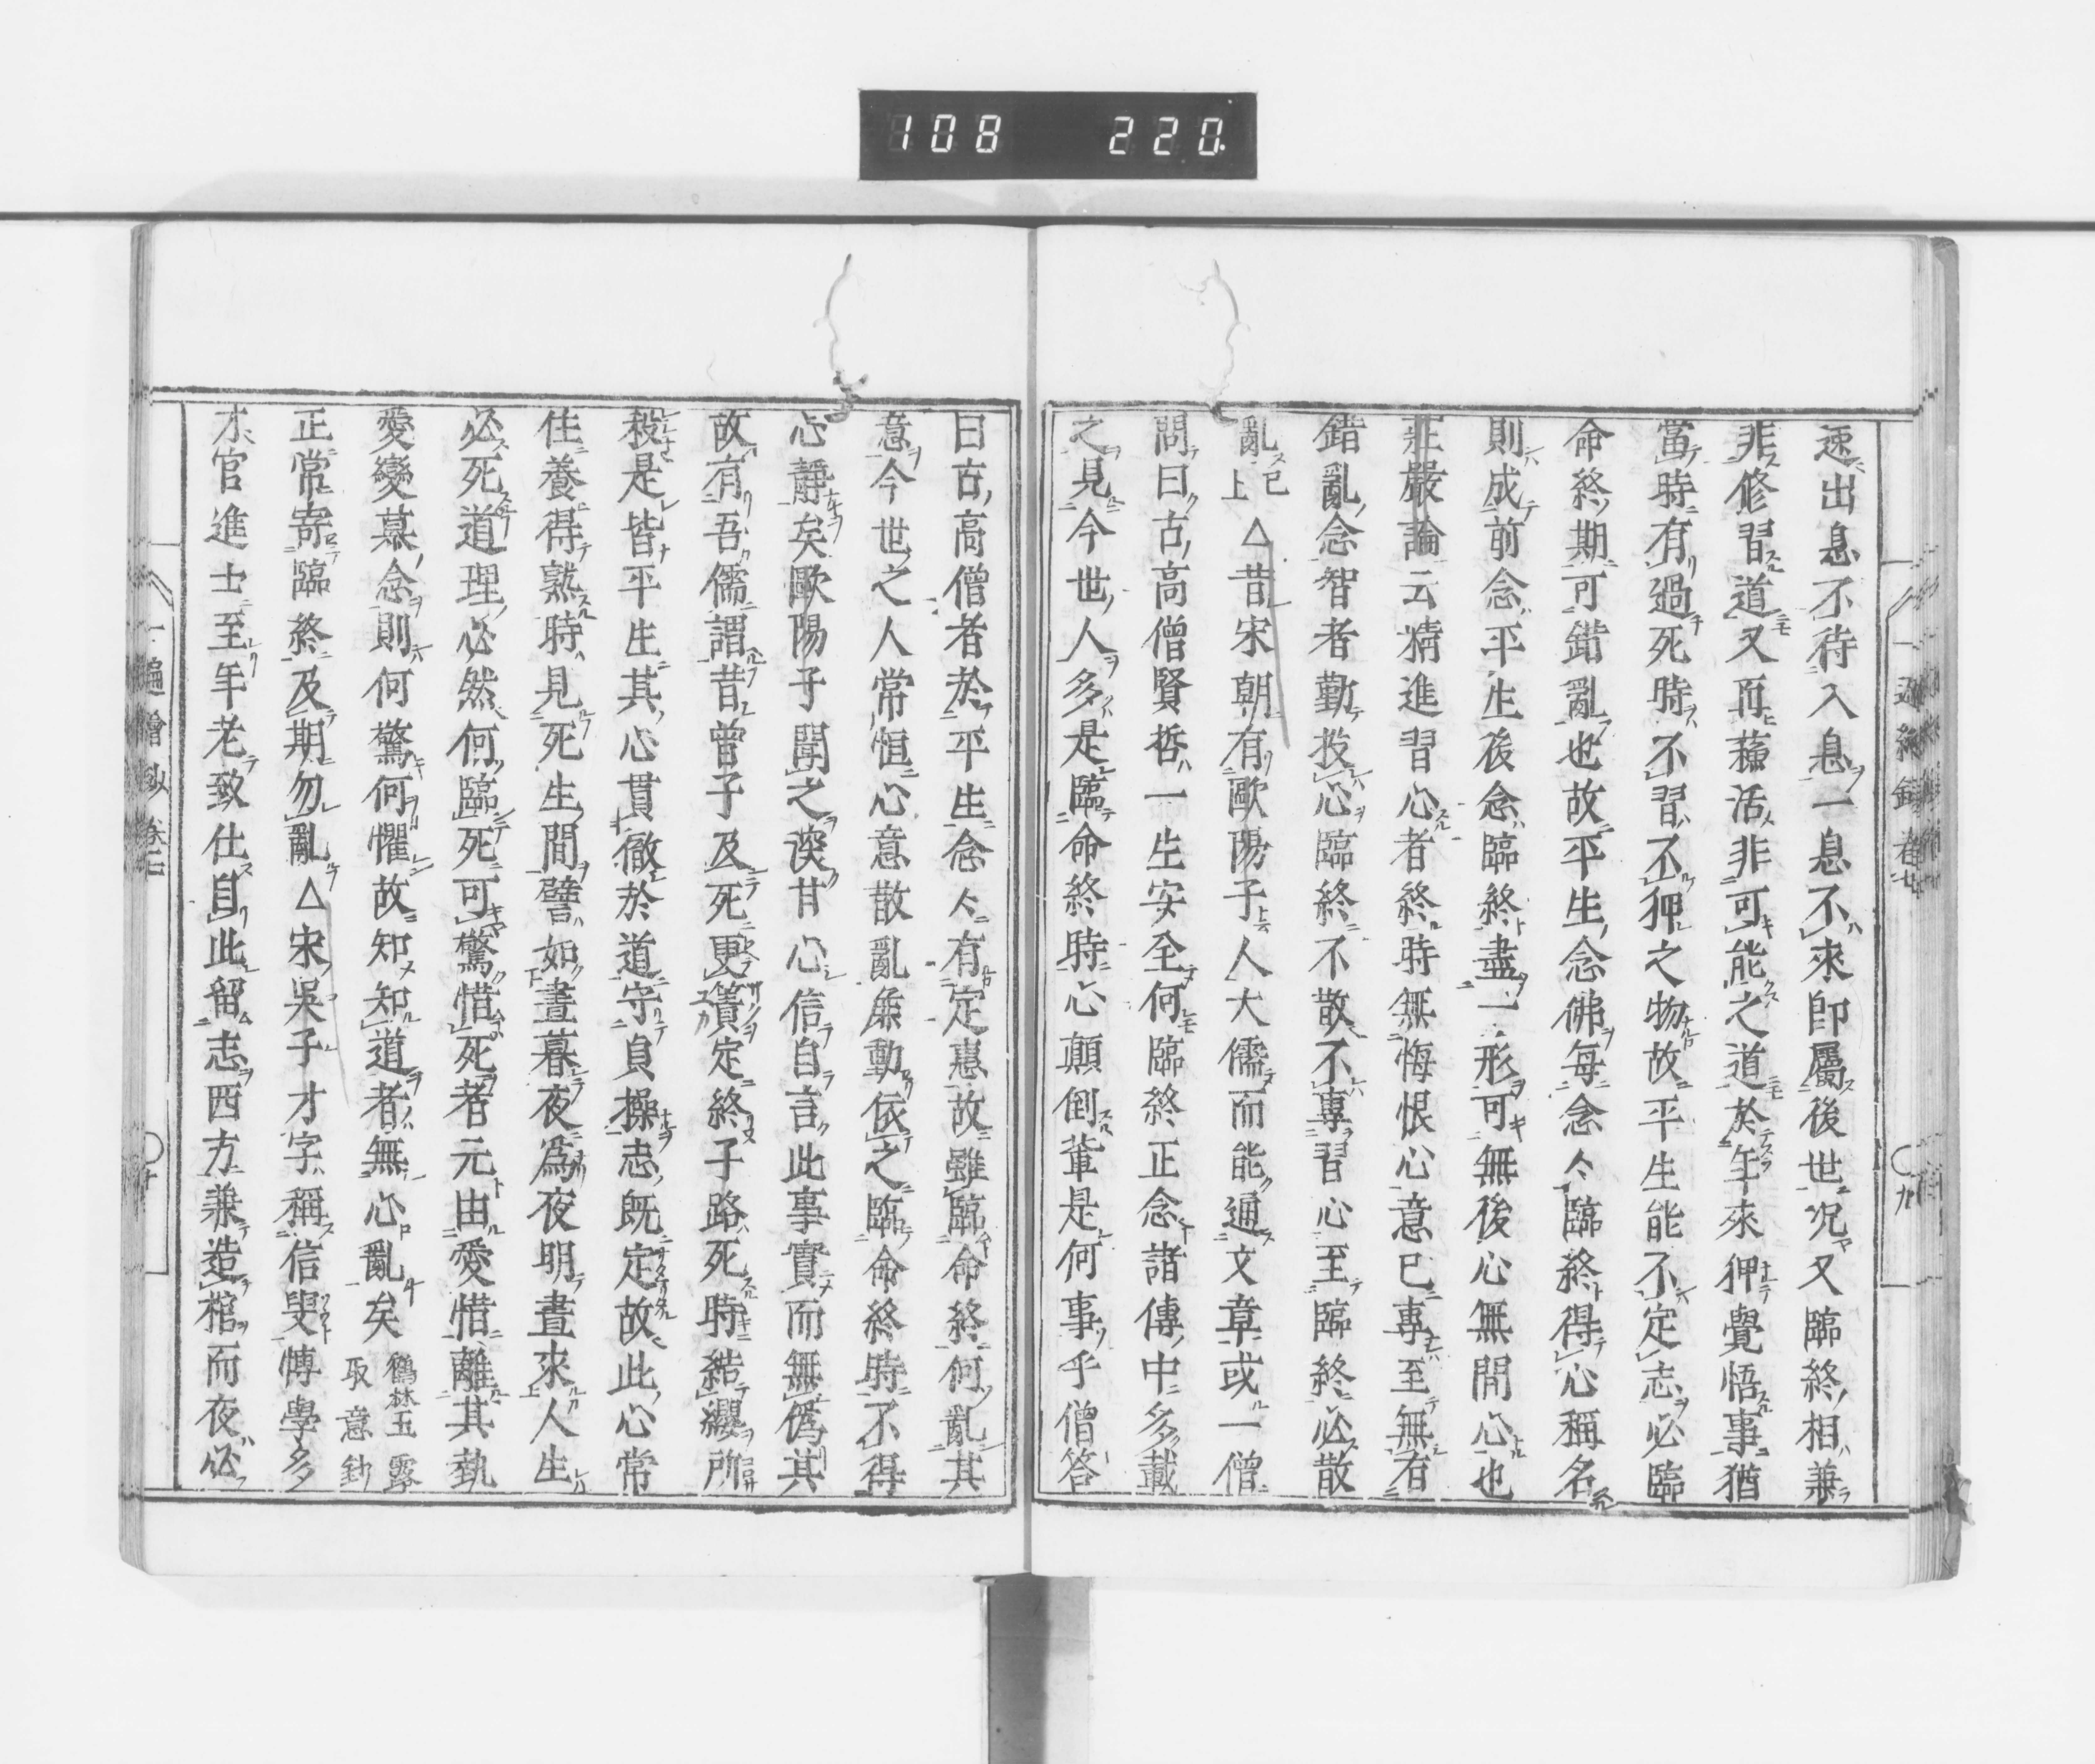 108 220
速出息不待入息一息不來即屬後世况又臨終相兼
非修習道又再蘇活非可能之道於年來狎覺悟事猶
當時有過死時不習不狎之物故平生能不定志必臨
命終期可錯亂也故平生念佛每念念臨終得心稱名
則成前念平生後念臨終盡一形可無後心無間心也
莊嚴論云精進習心者終時無悔恨心意已專至無有
錯亂念智者勤投心臨終不散不專習心至臨終必散
亂已上△昔宋朝有歐陽子人大儒而能通文章或一僧
問曰古高僧賢哲一生安全何臨終正念諸傳中多載
之見今世人多是臨命終時心顛倒輩是何事乎僧答
曰古高僧者於平生念念有定惠故雖臨命終何亂其
意今世之人常恒心意散亂麁動依之臨命終時不得
心靜矣歐陽子聞之深甘心信自言此事實而無僞其
故有吾儒謂昔曾子及死更簀定終子路死時結纓所
殺是皆平生其心貫徹於道守貞操志既定故此心常
住養得熟時見死生間譬如晝暮夜為夜明晝來人生
必死道理必然何臨死可驚惜死者元由愛惜離其執
愛變慕念則何驚何懼故知知道者無心亂矣鶴林玉露取意鈔
正常寄臨終及期勿亂△宋吳子才字稱信叟博學多
才官進士至年老致仕自此留志西方兼造棺而夜必